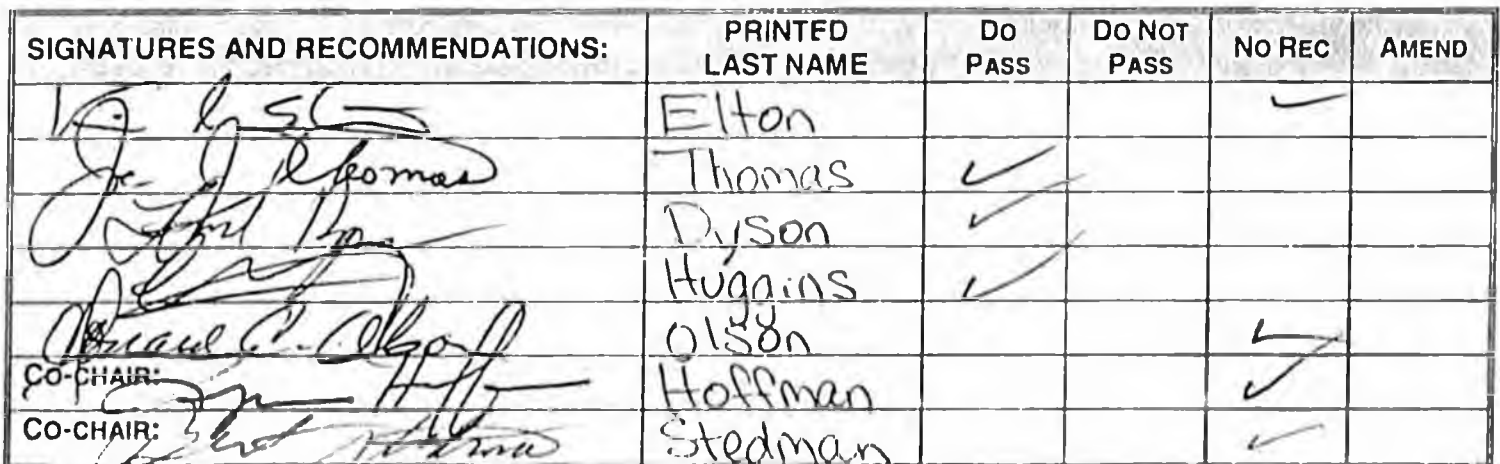 SIGNATURES AND RECOMMENDATIONS: PRINTED LAST NAME DO PASS DO NOT PASS NO REC AMEND
Elton ✓
Thomas Thomas ✓
Dyson ✓
Huggins ✓
Olson ✓
CO-CHAIR: Hoffman ✓
CO-CHAIR: Stedman ✓